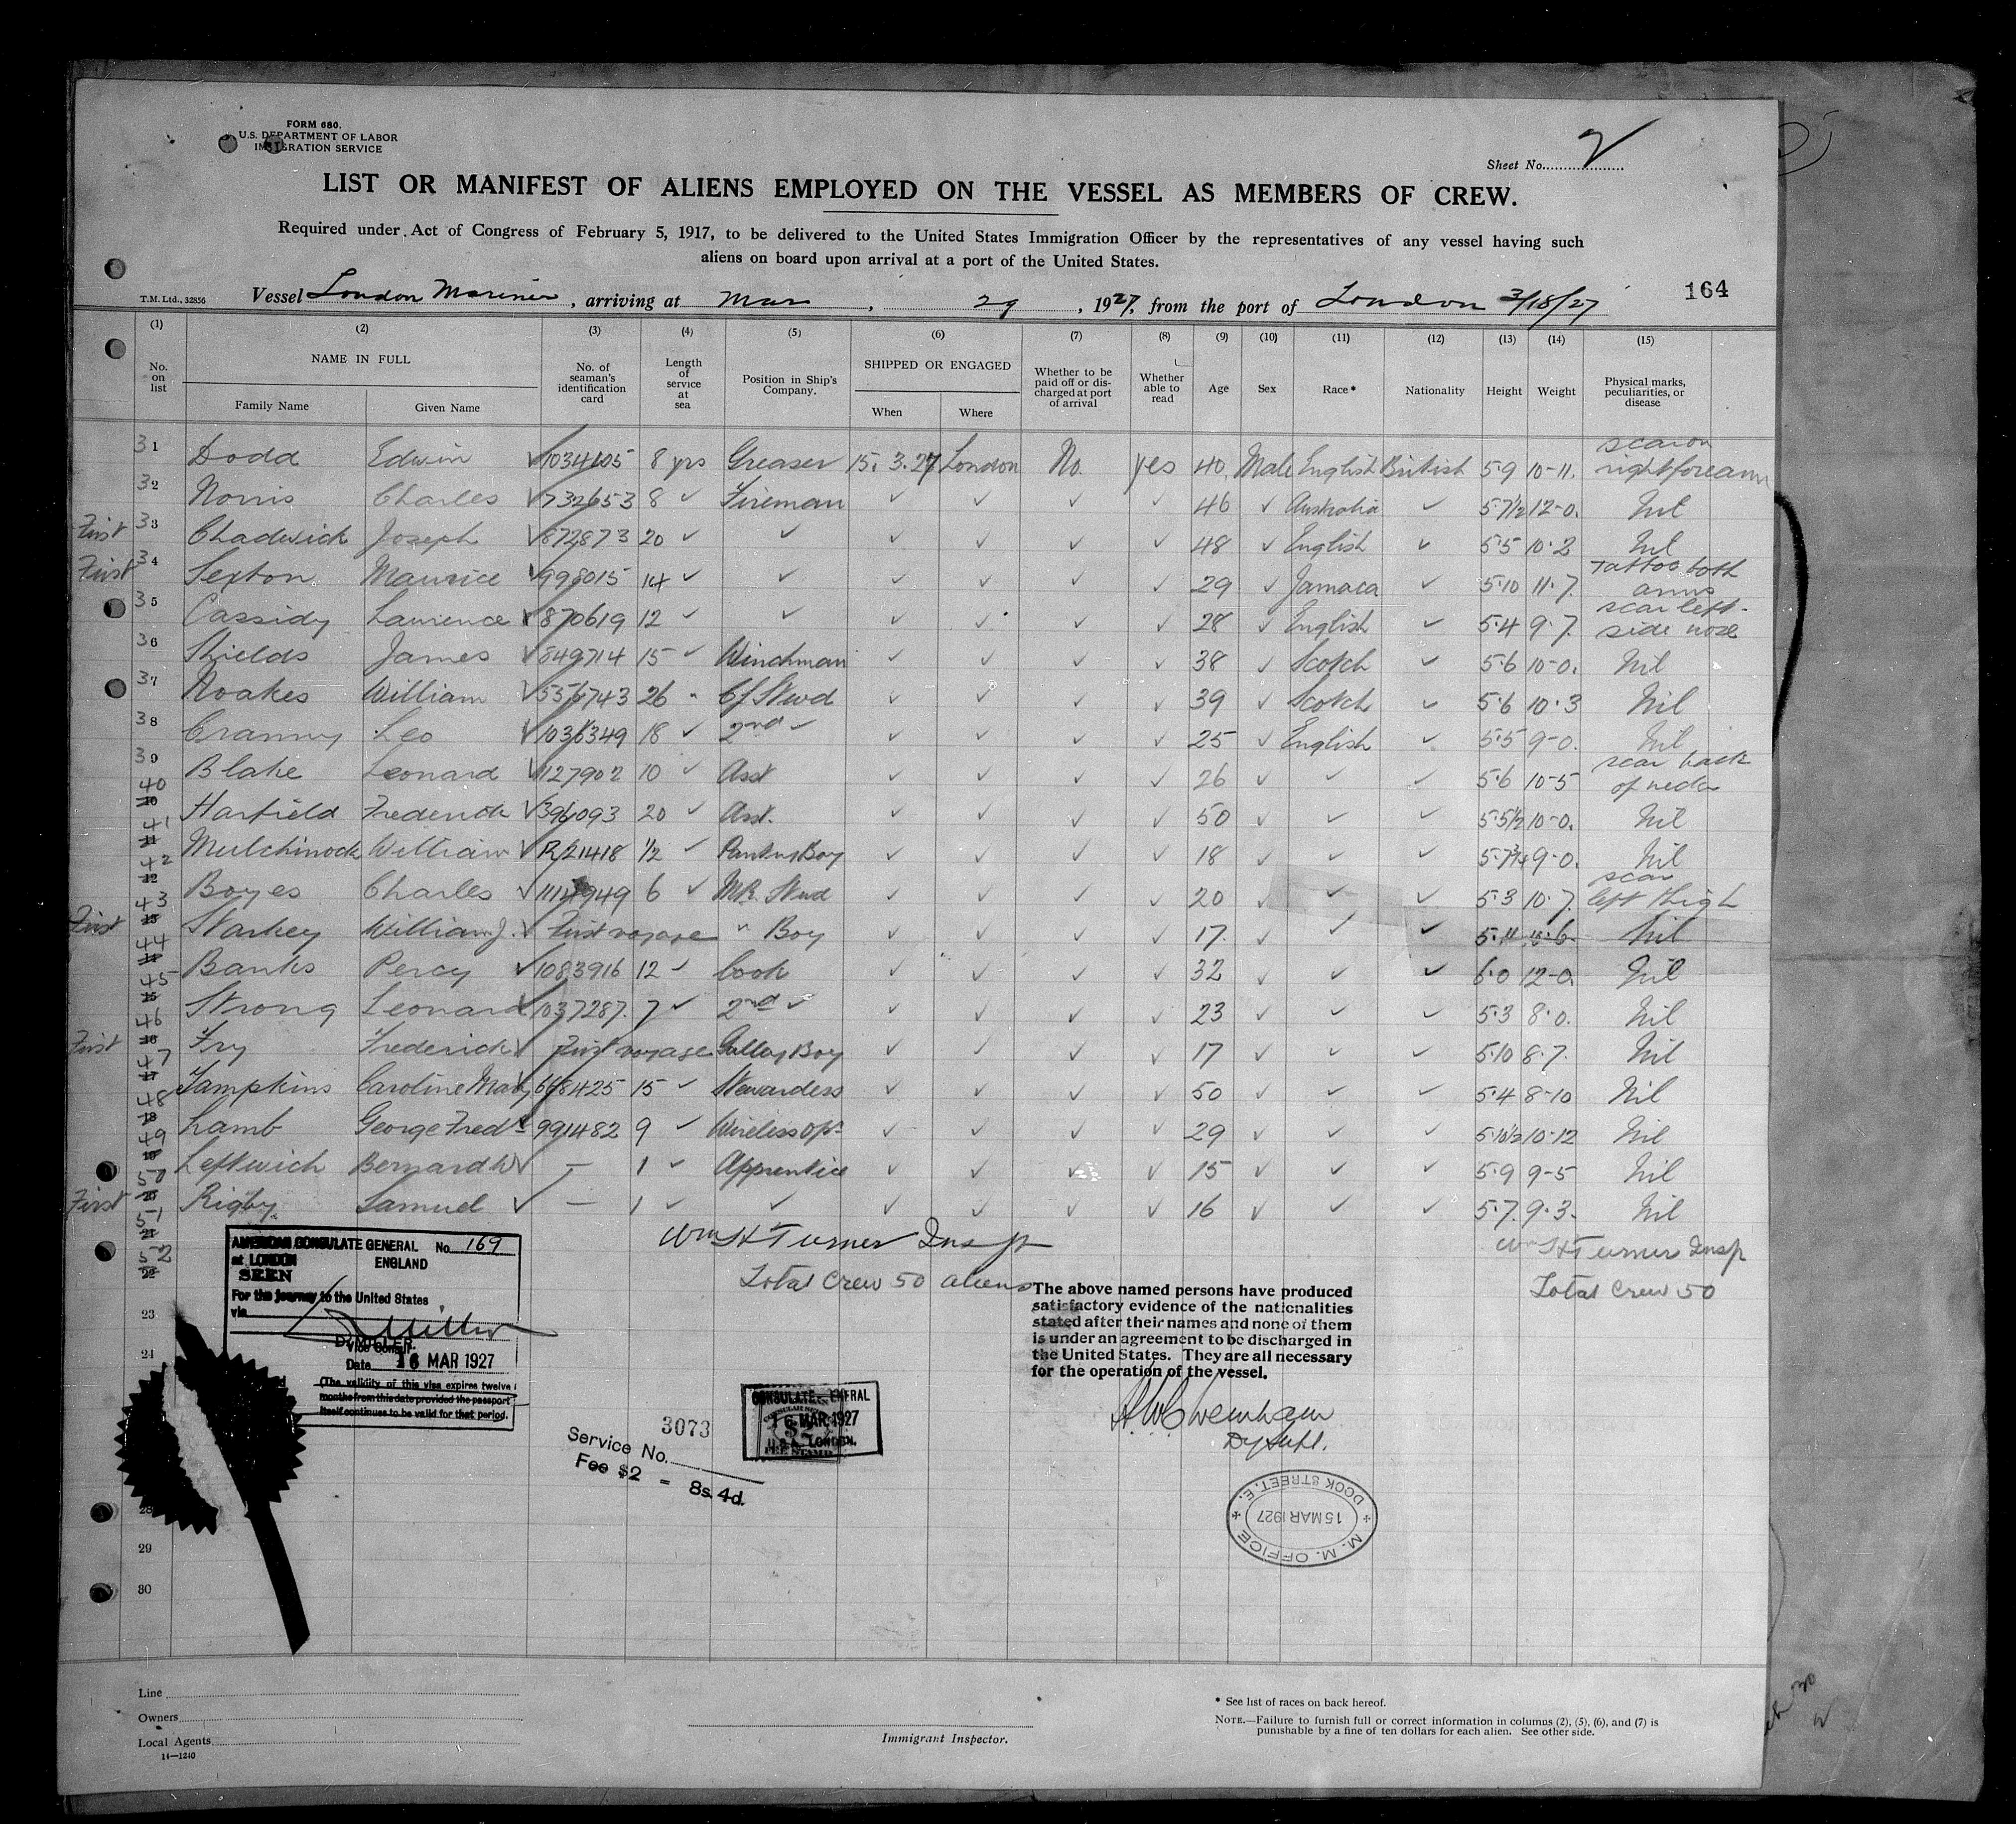 FORM 680.
U.S. DEPARTMENT OF LABOR
IMMIGRATION SERVICE
Sheet No. 2
LIST OR MANIFEST OF ALIENS EMPLOYED ON THE VESSEL AS MEMBERS OF CREW.
Required under Act of Congress of February 5, 1917, to be delivered to the United States Immigration Officer by the representatives of any vessel having such
aliens on board upon arrival at a port of the United States.
T.M. Ltd., 32856 Vessel London Mariner, arriving at Mar, 29, 1927, from the port of London 3/18/27
164
(1) (2) (3) (4) (5) (6) (7) (8) (9) (10) (11) (12) (13) (14) (15)
No. on list NAME IN FULL Family Name Given Name No. of seaman's identification card Length of service at sea Position in Ship's Company. SHIPPED OR ENGAGED When Where Whether to be paid off or discharged at port of arrival Whether able to read Age Sex Race* Nationality Height Weight Physical marks, peculiarities, or disease
31 Dodd Edwin ✓ 1034105 8 yrs Greaser 15.3.27 London No. yes 40 Male English British 5·9 10-11. scar on right forearm
32 Norris Charles ✓ 732653 8 ✓ Fireman ✓ ✓ ✓ ✓ 46 ✓ Australia ✓ 5·7½ 12-0. Nil
First 33 Chadwick Joseph ✓ 872873 20 ✓ ✓ ✓ ✓ ✓ ✓ 48 ✓ English ✓ 5·5 10·2 Nil
First 34 Sexton Maurice ✓ 998015 14 ✓ ✓ ✓ ✓ ✓ ✓ 29 ✓ Jamaca ✓ 5·10 11·7. Tattoo both arms
35 Cassidy Laurence ✓ 870619 12 ✓ ✓ ✓ ✓ ✓ ✓ 28 ✓ English ✓ 5·4 9·7. scar left side nose
36 Shields James ✓ 849714 15 ✓ Winchman ✓ ✓ ✓ ✓ 38 ✓ Scotch ✓ 5·6 10-0. Nil
37 Noakes William ✓ 556743 26 " Cf Stwd ✓ ✓ ✓ ✓ 39 ✓ Scotch ✓ 5·6 10·3 Nil
38 Cranny Leo ✓ 1036349 18 ✓ 2nd ✓ ✓ ✓ ✓ ✓ 25 ✓ English ✓ 5·5 9-0. Nil
39 Blake Leonard ✓ 127902 10 ✓ Asst ✓ ✓ ✓ ✓ 26 ✓ ✓ ✓ 5·6 10-5 scar back of neck
40 Harfield Frederick ✓ 396093 20 ✓ Asst. ✓ ✓ ✓ ✓ 50 ✓ ✓ ✓ 5·5½ 10-0. Nil
41 Mulchinock William ✓ R/21418 ½ ✓ Pantry Boy ✓ ✓ ✓ ✓ 18 ✓ ✓ ✓ 5·7¾ 9-0. Nil
42 Boyes Charles ✓ 1114949 6 ✓ M.R. Stwd ✓ ✓ ✓ ✓ 20 ✓ ✓ ✓ 5·3 10·7. scar left thigh
First 43 Starkey William J. ✓ First voyage " Boy ✓ ✓ ✓ ✓ 17. ✓ ✓ ✓ Nil
44 Banks Percy ✓ 1083916 12 ✓ Cook ✓ ✓ ✓ ✓ 32 ✓ ✓ ✓ 6·0 12-0. Nil
45 Strong Leonard ✓ 1037287. 7 ✓ 2nd ✓ ✓ ✓ ✓ ✓ 23 ✓ ✓ ✓ 5·3 8·0. Nil
First 46 Fry Frederick ✓ First voyage Galley Boy ✓ ✓ ✓ ✓ 17 ✓ ✓ ✓ 5·10 8·7. Nil
47 Tampkins Caroline Mary 668425 15 ✓ Stewardess ✓ ✓ ✓ ✓ 50 ✓ ✓ ✓ 5·4 8-10 Nil
48 Lamb George Fredk 991482 9 ✓ Wireless Opr ✓ ✓ ✓ ✓ 29 ✓ ✓ ✓ 5·10½ 10-12 Nil
49 Leftwich Bernard W ✓ — 1 ✓ Apprentice ✓ ✓ ✓ ✓ 15 ✓ ✓ ✓ 5·9 9-5 Nil
First 50 Rigby. Samuel ✓ — 1 ✓ ✓ ✓ ✓ ✓ ✓ 16 ✓ ✓ ✓ 5·7. 9·3. Nil
51
52
23
24
28
29
30
Wm H Turner Insp
Total Crew 50 aliens
Wm H Turner Insp
Total Crew 50
AMERICAN CONSULATE GENERAL No. 169
at LONDON ENGLAND
SEEN
For the journey to the United States
via
D. MILLER.
Vice Consul.
Date 16 MAR 1927
(The validity of this visa expires twelve
months from this date provided the passport
itself continues to be valid for that period.
The above named persons have produced
satisfactory evidence of the nationalities
stated after their names and none of them
is under an agreement to be discharged in
the United States. They are all necessary
for the operation of the vessel.
Dy Supt.
3073
Service No.
Fee $2 = 8s. 4d.
CONSULATE GENERAL
16 MAR 1927
U.S.A. LONDON.
M. M. OFFICE
15 MAR 1927
DOCK STREET. E.
Line
Owners
Local Agents
14—1240
Immigrant Inspector.
* See list of races on back hereof.
NOTE.—Failure to furnish full or correct information in columns (2), (5), (6), and (7) is
punishable by a fine of ten dollars for each alien. See other side.